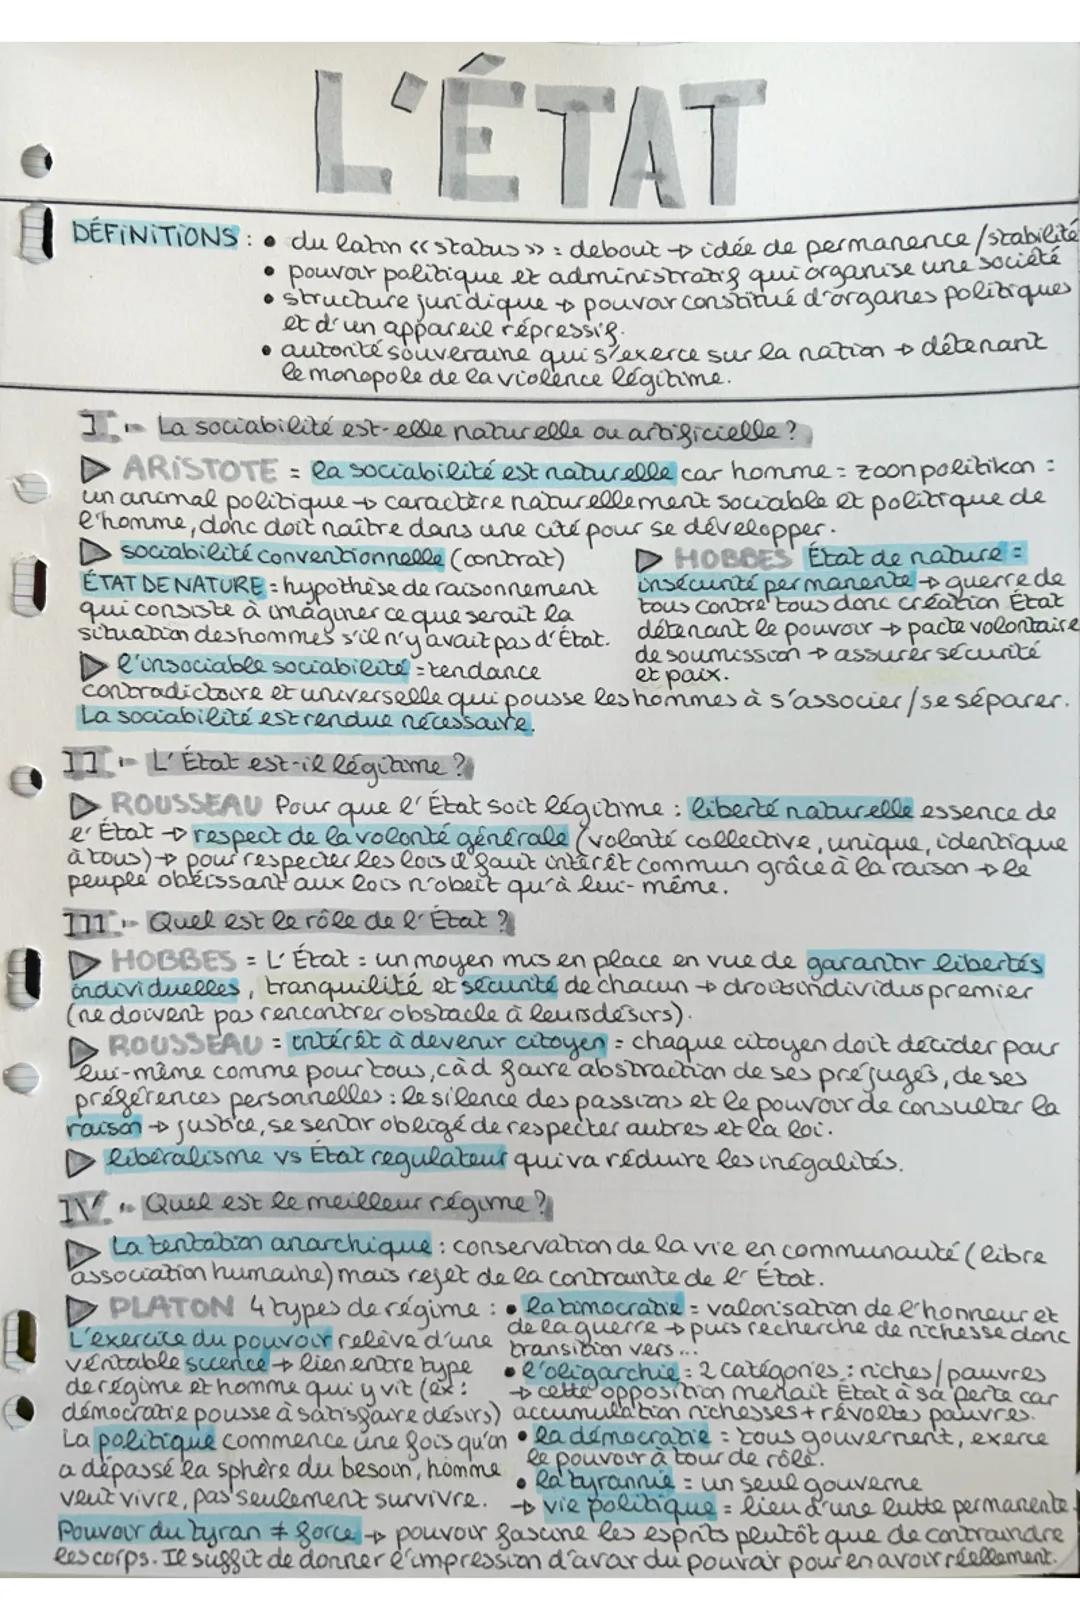 L'ÉTAT
DÉFINITIONS : • du latin «status» = debout → idée de permanence/stabilité
• pouvoir politique et administratif qui organise une société
• structure juridique → pouvoir constitué d'organes politiques
et d'un appareil répressif.
• autorité souveraine qui s'exerce sur la nation → détenant
le monopole de la violence légitime.
I - La sociabilité est-elle naturelle ou artificielle ?
▷ ARISTOTE = la sociabilité est naturelle car homme = zoon politikon =
un animal politique → caractère naturellement sociable et politique de
l'homme, donc doit naître dans une cité pour se développer.
▷ sociabilité conventionnelle (contrat)
ÉTAT DE NATURE = hypothèse de raisonnement
qui consiste à imaginer ce que serait la
situation des hommes s'il n'y avait pas d'État.
▷ HOBBES État de nature =
insécurité permanente → guerre de
tous contre tous donc création État
détenant le pouvoir → pacte volontaire
de soumission → assurer sécurité
et paix.
▷ l'insociable sociabilité = tendance
contradictoire et universelle qui pousse les hommes à s'associer/se séparer.
La sociabilité est rendue nécessaire.
II - L'État est-il légitime ?
▷ ROUSSEAU Pour que l'État soit légitime : liberté naturelle essence de
l'État → respect de la volonté générale (volonté collective, unique, identique
à tous) → pour respecter les lois il faut intérêt commun grâce à la raison → le
peuple obéissant aux lois n'obéit qu'à lui-même.
III - Quel est le rôle de l'État ?
▷ HOBBES = L'État = un moyen mis en place en vue de garantir libertés
individuelles, tranquilité et sécurité de chacun → droits individus premier
(ne doivent pas rencontrer obstacle à leurs désirs).
▷ ROUSSEAU = intérêt à devenir citoyen = chaque citoyen doit décider pour
lui-même comme pour tous, càd faire abstraction de ses préjugés, de ses
préférences personnelles : le silence des passions et le pouvoir de consulter la
raison → justice, se sentir obligé de respecter autres et la loi.
▷ libéralisme vs État regulateur qui va réduire les inégalités.
IV - Quel est le meilleur régime ?
▷ La tentation anarchique : conservation de la vie en communauté (libre
association humaine) mais rejet de la contrainte de l'État.
▷ PLATON 4 types de régime :
L'exercice du pouvoir relève d'une
véritable science → lien entre type
de régime et homme qui y vit (ex :
démocratie pousse à satisfaire désirs)
La politique commence une fois qu'on
a dépassé la sphère du besoin, homme
veut vivre, pas seulement survivre.
• la timocratie = valorisation de l'honneur et
de la guerre → puis recherche de richesse donc
transition vers...
• l'oligarchie = 2 catégories : riches/pauvres
→ cette opposition menait État à sa perte car
accumulation richesses + révoltes pauvres.
• la démocratie = tous gouvernent, exerce
le pouvoir à tour de rôle.
• la tyrannie = un seul gouverne
→ vie politique = lieu d'une lutte permanente.
Pouvoir du tyran ≠ force → pouvoir fascine les esprits plutôt que de contraindre
les corps. Il suffit de donner l'impression d'avoir du pouvoir pour en avoir réellement.